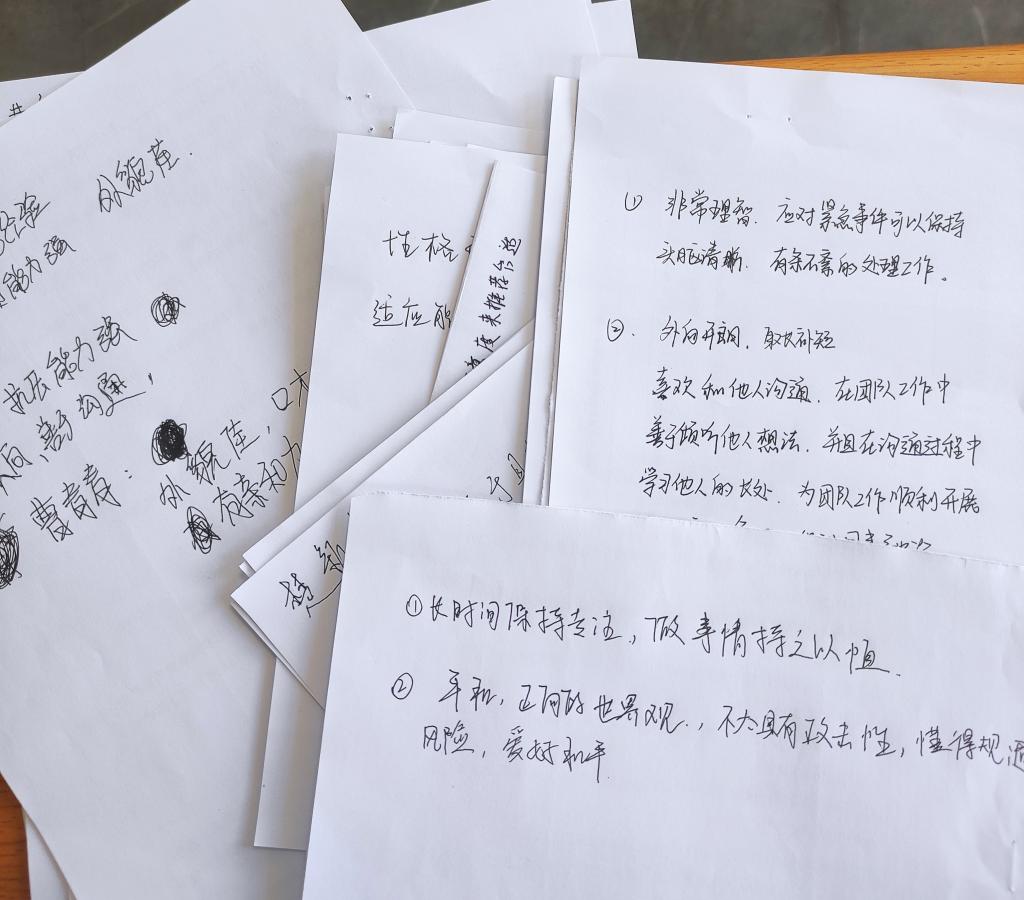 外貌佳.
能力强
抗压能力强
善于沟通,
曹青青:
外貌佳,口才
有亲和力
性格
适应能
度来推荐合适
① 非常理智.应对紧急事件可以保持
头脑清晰.有条不紊的处理工作。
②.外向开朗,取长补短
喜欢和他人沟通.在团队工作中
善于倾听他人想法.并且在沟通过程中
学习他人的长处.为团队工作顺利开展
①长时间保持专注,做事情持之以恒.
② 平和,正向的世界观.,不太具有攻击性,懂得规避
风险,爱好和平.